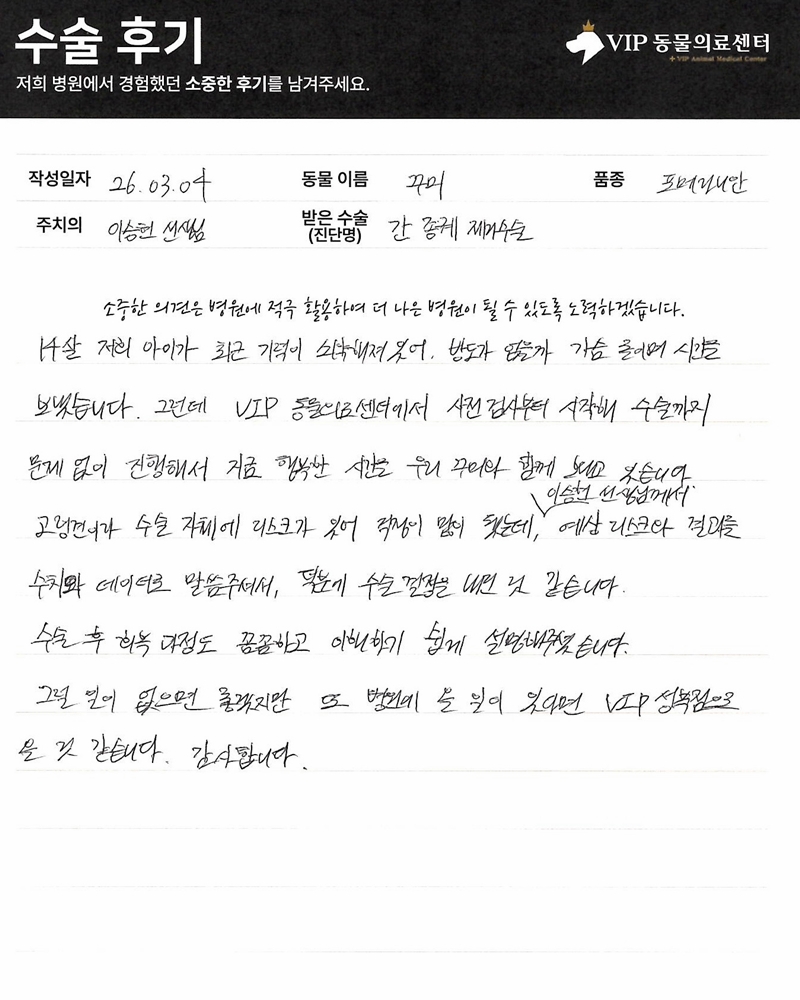 수술 후기
VIP 동물의료센터
+ VIP Animal Medical Center
저희 병원에서 경험했던 소중한 후기를 남겨주세요.
작성일자 26.03.04 동물 이름 꾸미 품종 포메라니안
주치의 이승헌 선생님 받은 수술 (진단명) 간 종괴 제거수술
소중한 의견은 병원에 적극 활용하여 더 나은 병원이 될 수 있도록 노력하겠습니다.
14살 저희 아이가 최근 기력이 쇠약해져 있어, 방도가 없을까 가슴 졸이며 시간을
보냈습니다. 그런데 VIP 동물의료센터에서 사전 검사부터 시작해 수술까지
문제 없이 진행해서 지금 행복한 시간을 우리 꾸미와 함께 보내고 있습니다
이승헌 선생님께서
고령견이라 수술 자체에 리스크가 있어 걱정이 많이 됐는데, 예상 리스크와 결과를
수치와 데이터로 말씀주셔서, 덕분에 수술 결정을 내린 것 같습니다.
수술 후 회복 과정도 꼼꼼하고 이해하기 쉽게 설명해주셨습니다.
그럴 일이 없으면 좋겠지만 또 병원에 올 일이 있다면 VIP 성북점으로
올 것 같습니다. 감사합니다.